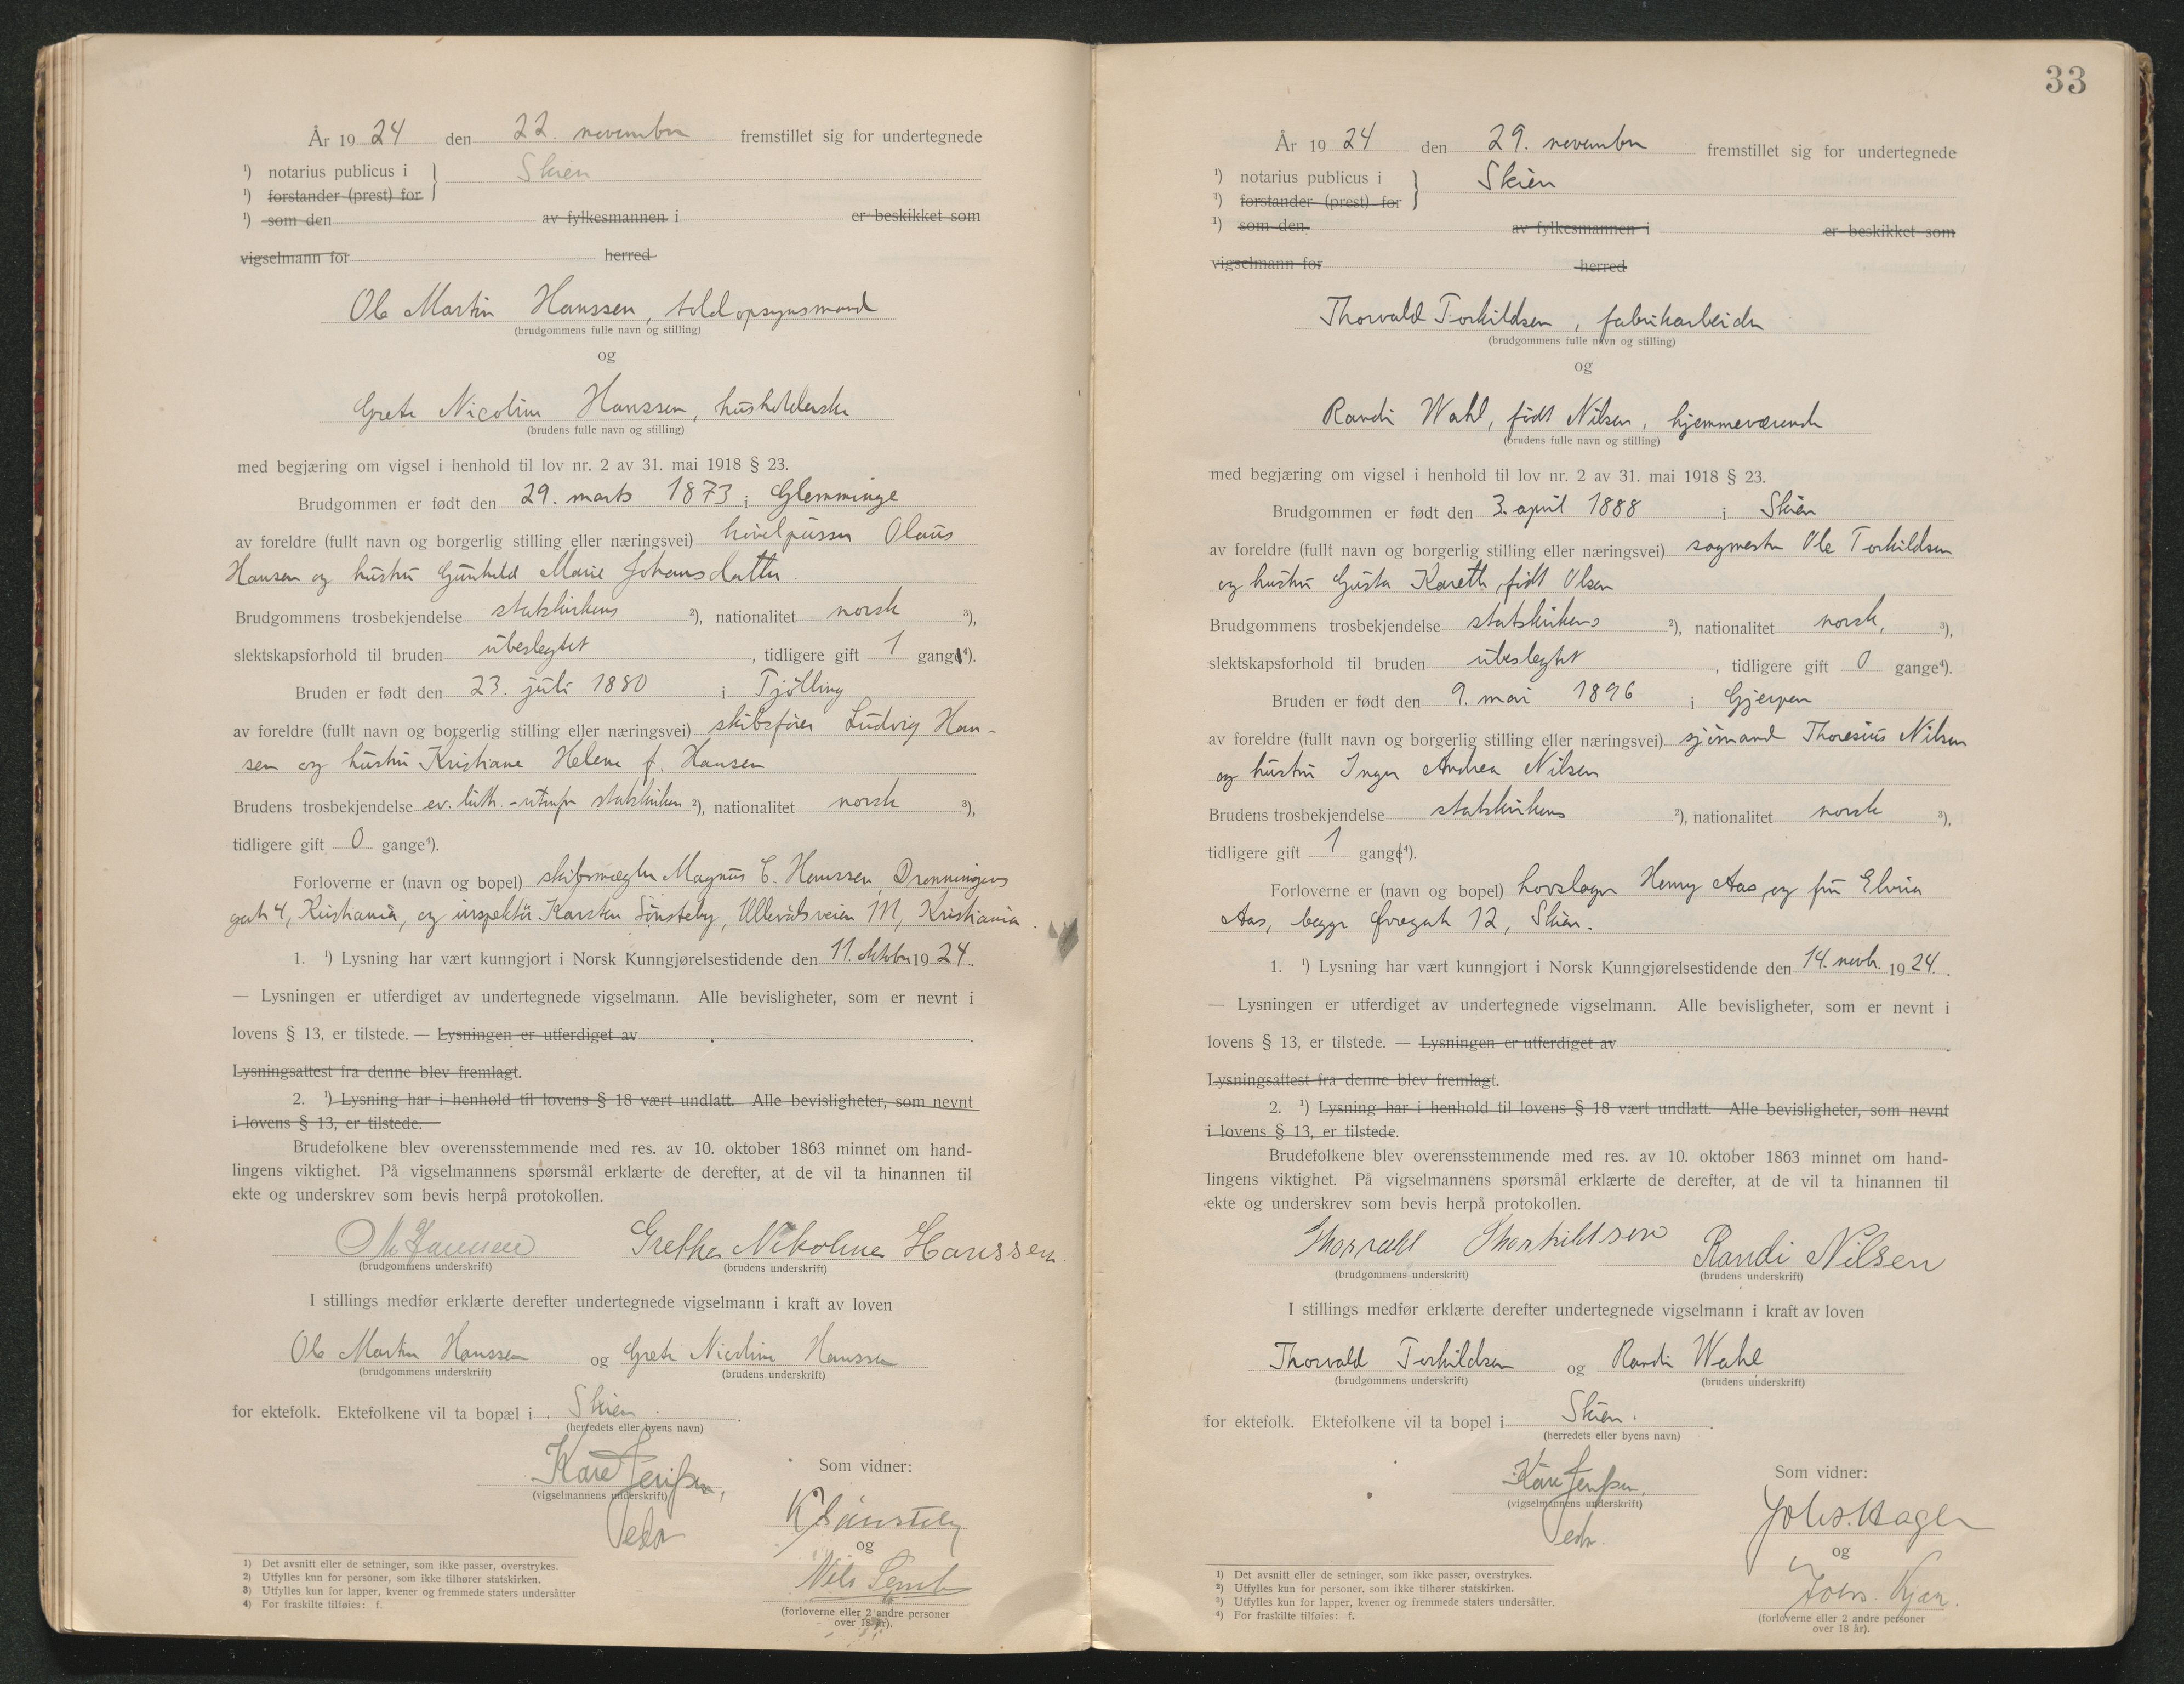 År 1924 den 22. november fremstillet sig for undertegnede
¹) notarius publicus i } Skien
¹) forstander (prest) for
¹) som den av fylkesmannen i er beskikket som
vigselmann for herred
Ole Martin Hanssen, toldopsynsmand
(brudgommens fulle navn og stilling)
og
Grete Nicoline Hanssen, husholderske
(brudens fulle navn og stilling)
med begjæring om vigsel i henhold til lov nr. 2 av 31. mai 1918 § 23.
Brudgommen er født den 29. marts 1873 i Glemminge
av foreldre (fullt navn og borgerlig stilling eller næringsvei) Olaus
Hansen og hustru Gunhild Marie Johansdatter.
Brudgommens trosbekjendelse statskirkens ²), nationalitet norsk ³),
slektskapsforhold til bruden ubeslegtet, tidligere gift 1 gang ⁴).
Bruden er født den 23. juli 1880 i Tjølling
av foreldre (fullt navn og borgerlig stilling eller næringsvei) skibsfører Ludvig Han-
sen og hustru Kristiane Helene f. Hansen
Brudens trosbekjendelse ev. luth. - utenfor statskirken ²), nationalitet norsk ³),
tidligere gift 0 gange⁴).
Forloverne er (navn og bopel) skibsmægler Magnus C. Hanssen, Dronningens
gate 4, Kristiania, og inspektør Karsten Sønsteby, Ullevålsveien 111, Kristiania.
1. ¹) Lysning har vært kunngjort i Norsk Kunngjørelsestidende den 11. oktober 1924.
— Lysningen er utferdiget av undertegnede vigselmann. Alle bevisligheter, som er nevnt i
lovens § 13, er tilstede. — Lysningen er utferdiget av
Lysningsattest fra denne blev fremlagt.
2. ¹) Lysning har i henhold til lovens § 18 vært undlatt. Alle bevisligheter, som nevnt
i lovens § 13, er tilstede.
Brudefolkene blev overensstemmende med res. av 10. oktober 1863 minnet om hand-
lingens viktighet. På vigselmannens spørsmål erklærte de derefter, at de vil ta hinannen til
ekte og underskrev som bevis herpå protokollen.
O M Hanssen Grethe Nikoline Hanssen.
(brudgommens underskrift) (brudens underskrift)
I stillings medfør erklærte derefter undertegnede vigselmann i kraft av loven
Ole Martin Hanssen og Grete Nicoline Hanssen
(brudgommens underskrift) (brudens underskrift)
for ektefolk. Ektefolkene vil ta bopæl i Skien.
(herredets eller byens navn)
Kåre Jenssen,
(vigselmannens underskrift)
Som vidner:
K Sønsteby
og
Nils
(forloverne eller 2 andre personer
over 18 år).
1) Det avsnitt eller de setninger, som ikke passer, overstrykes.
2) Utfylles kun for personer, som ikke tilhører statskirken.
3) Utfylles kun for lapper, kvener og fremmede staters undersåtter
4) For fraskilte tilføies: f.
33
År 1924 den 29. november fremstillet sig for undertegnede
¹) notarius publicus i } Skien
¹) forstander (prest) for
¹) som den av fylkesmannen i er beskikket som
vigselmann for herred
Thorvald Torkildsen, fabrikarbeider
(brudgommens fulle navn og stilling)
og
Randi Wahl, født Nilsen, hjemmeværende
(brudens fulle navn og stilling)
med begjæring om vigsel i henhold til lov nr. 2 av 31. mai 1918 § 23.
Brudgommen er født den 3. april 1888 i Skien
av foreldre (fullt navn og borgerlig stilling eller næringsvei) sagmester Ole Torkildsen
og hustru Gusta Kareth, født Olsen
Brudgommens trosbekjendelse statskirkens ²), nationalitet norsk, ³),
slektskapsforhold til bruden ubeslegtet, tidligere gift 0 gange⁴).
Bruden er født den 9. mai 1896 i Gjerpen
av foreldre (fullt navn og borgerlig stilling eller næringsvei) sjømand Thoresius Nilsen
og hustru Inger Andrea Nilsen
Brudens trosbekjendelse statskirkens ²), nationalitet norsk ³),
tidligere gift 1 gang ⁴).
Forloverne er (navn og bopel) hovslager Henry Aas og fru Elvira
Aas, begge Øvregate 12, Skien.
1. ¹) Lysning har vært kunngjort i Norsk Kunngjørelsestidende den 14. novbr. 1924.
— Lysningen er utferdiget av undertegnede vigselmann. Alle bevisligheter, som er nevnt i
lovens § 13, er tilstede. — Lysningen er utferdiget av
Lysningsattest fra denne blev fremlagt.
2. ¹) Lysning har i henhold til lovens § 18 vært undlatt. Alle bevisligheter, som nevnt
i lovens § 13, er tilstede.
Brudefolkene blev overensstemmende med res. av 10. oktober 1863 minnet om hand-
lingens viktighet. På vigselmannens spørsmål erklærte de derefter, at de vil ta hinannen til
ekte og underskrev som bevis herpå protokollen.
Thorvald Thorkildsen Randi Nilsen
(brudgommens underskrift) (brudens underskrift)
I stillings medfør erklærte derefter undertegnede vigselmann i kraft av loven
Thorvald Torkildsen og Randi Wahl
(brudgommens underskrift) (brudens underskrift)
for ektefolk. Ektefolkene vil ta bopel i Skien.
(herredets eller byens navn)
Kåre Jenssen,
(vigselmannens underskrift)
Som vidner:
Johs. Hagen
og
Johs. Kjær.
(forloverne eller 2 andre personer
over 18 år).
¹) Det avsnitt eller de setninger, som ikke passer, overstrykes.
²) Utfylles kun for personer, som ikke tilhører statskirken.
³) Utfylles kun for lapper, kvener og fremmede staters undersåtter.
⁴) For fraskilte tilføies: f.